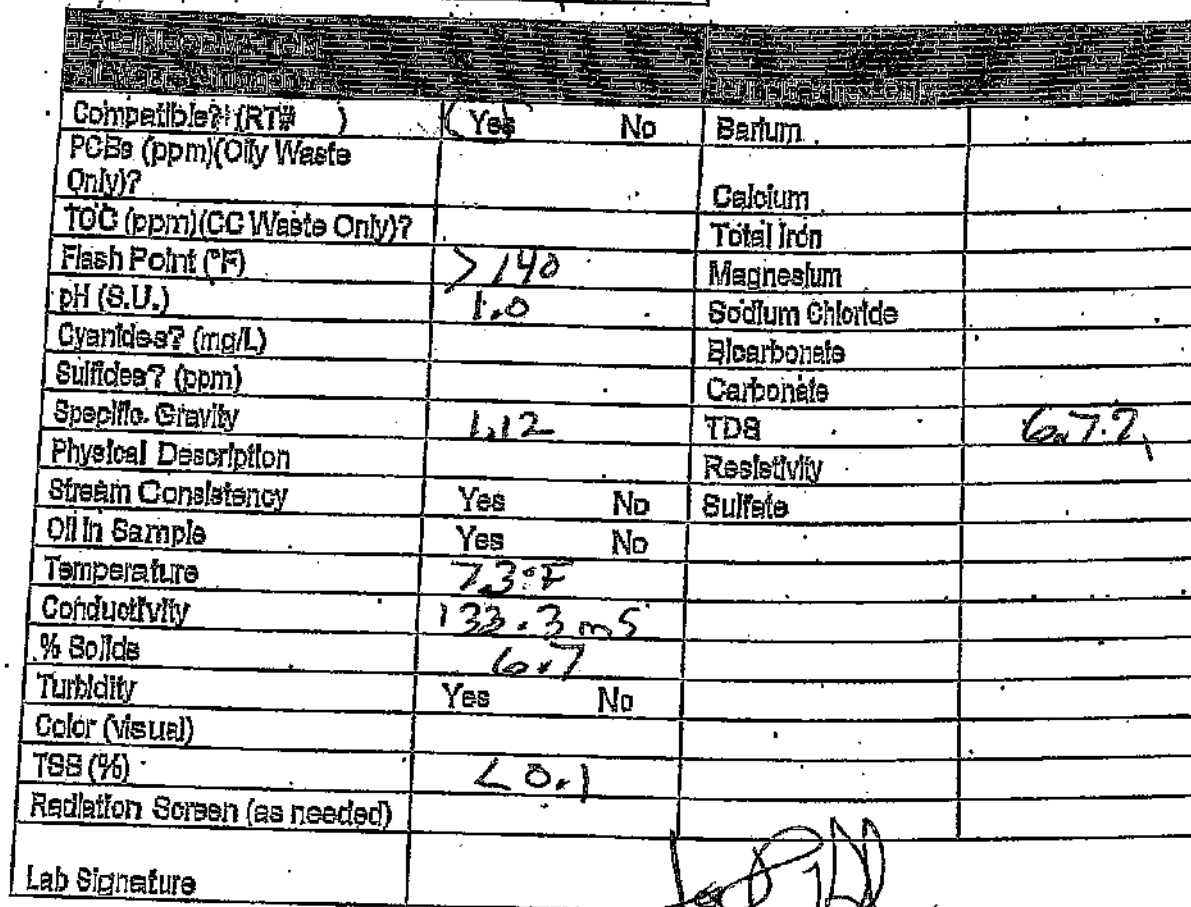 LAB INFORMATION
Compatible? (RT# ) Yes No Barium
PCBs (ppm)(Oily Waste
Only)? Calcium
TOC (ppm)(CC Waste Only)? Total Iron
Flash Point (°F) >140 Magnesium
pH (S.U.) 1.0 Sodium Chloride
Cyanides? (mg/L) Bicarbonate
Sulfides? (ppm) Carbonate
Specific Gravity 1.12 TDS
Physical Description Resistivity
Stream Consistency Yes No Sulfate
Oil in Sample Yes No
Temperature
Conductivity 133.3 mS
% Solids 6.7
Turbidity Yes No
Color (visual)
TSS (%) <0.1
Radiation Screen (as needed)
Lab Signature